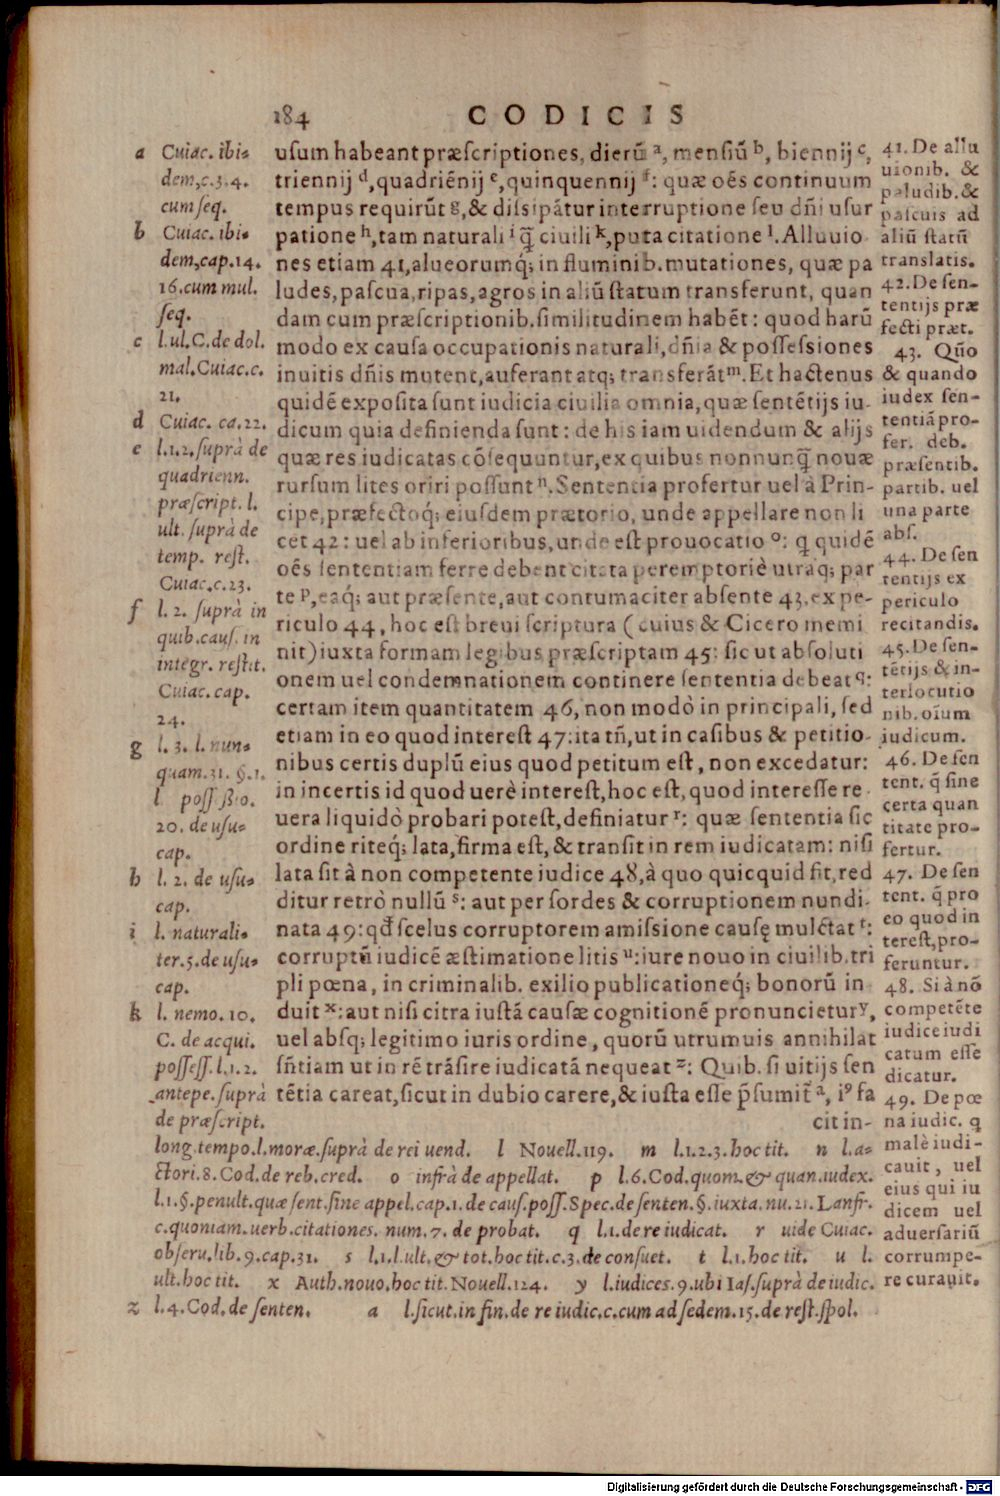 184 CODICIS
usum habeant præscriptiones, dierũ a, mensiũ b, biennij c,
triennij d, quadriẽnij e, quinquennij f: quæ oẽs continuum
tempus requirũt g, & dissipãtur interruptione seu dñi usur
patione h, tam naturali i q̃ ciuili k, puta citatione l. Alluuio-
nes etiam 41, alueorumq́; in fluminib. mutationes, quæ pa
ludes, pascua, ripas, agros in aliũ statum transferunt, quan
dam cum præscriptionib. similitudinem habẽt: quod harũ
modo ex causa occupationis naturali, dñia & possessiones
inuitis dñis mutent, auferant atq; transferãt m. Et hactenus
quidẽ exposita sunt iudicia ciuilia omnia, quæ sentẽtijs iu-
dicum quia definienda sunt: de his iam uidendum & alijs
quæ res iudicatas cõsequuntur, ex quibus nonnunq̃ nouæ
rursum lites oriri possunt n. Sententia profertur uel à Prin-
cipe, præfectoq́; eiusdem prætorio, unde appellare non li
cet 42: uel ab inferioribus, unde est prouocatio o: q̃ quidẽ
oẽs sententiam ferre debent citata peremptoriè utraq; par
te p, eaq́; aut præsente, aut contumaciter absente 43, ex pe-
riculo 44, hoc est breui scriptura (cuius & Cicero memi
nit) iuxta formam legibus præscriptam 45: sic ut absoluti
onem uel condemnationem continere sententia debeat q:
certam item quantitatem 46, non modò in principali, sed
etiam in eo quod interest 47: ita tñ, ut in casibus & petitio-
nibus certis duplũ eius quod petitum est, non excedatur:
in incertis id quod uerè interest, hoc est, quod interesse re-
uera liquidò probari potest, definiatur r: quæ sententia sic
ordine riteq́; lata, firma est, & transit in rem iudicatam: nisi
lata sit à non competente iudice 48, à quo quicquid fit, red
ditur retrò nullũ s: aut per sordes & corruptionem nundi-
nata 49: qđ scelus corruptorem amissione causę mulctat t:
corruptũ iudicẽ æstimatione litis u: iure nouo in ciuilib. tri
pli pœna, in criminalib. exilio publicationeq́; bonorũ in-
duit x: aut nisi citra iustã causæ cognitionẽ pronuncietur y,
uel absq; legitimo iuris ordine, quorũ utrumuis annihilat
sñtiam ut in rẽ trãsire iudicatã nequeat z: Quib. si uitijs sen
tẽtia careat, sicut in dubio carere, & iusta esse p̃sumit̃ a, iꝰ fa
cit in-
a Cuiac. ibi-
dem, c. 3. 4.
cum seq.
b Cuiac. ibi-
dem, cap. 14.
16. cum mul.
seq.
c l. ul. C. de dol.
mal. Cuiac. c.
21.
d Cuiac. ca. 22.
e l. 1. 2. suprà de
quadrienn.
præscript. l.
ult. suprà de
temp. rest.
Cuiac. c. 23.
f l. 2. suprà in
quib. caus. in
integr. restit.
Cuiac. cap.
24.
g l. 3. l. nun-
quam. 31. §. 1.
l poss.
20. de usu-
cap.
h l. 2. de usu-
cap.
i l. naturali-
ter. 5. de usu-
cap.
k l. nemo. 10.
C. de acqui.
possess. l. 1. 2.
antepe. suprà
de præscript.
long. tempo. l. moræ. suprà de rei uend. l Nouell. 119. m l. 1. 2. 3. hoc tit. n l. a-
ctori. 8. Cod. de reb. cred. o infrà de appellat. p l. 6. Cod. quom. & quan. iudex.
l. 1. §. penult. quæ sent. sine appel. cap. 1. de caus. poss. Spec. de senten. §. iuxta. nu. 21. Lanfr.
c. quoniam. uerb. citationes. num. 7. de probat. q l. 1. de re iudicat. r uide Cuiac.
obseru. lib. 9. cap. 31. s l. 1. l. ult. & tot. hoc tit. c. 3. de consuet. t l. 1. hoc tit. u l.
ult. hoc tit. x Auth. nouo. hoc tit. Nouell. 124. y l. iudices. 9. ubi Ias. suprà de iudic.
z l. 4. Cod. de senten. a l. sicut. in fin. de re iudic. c. cum ad sedem. 15. de rest. spol.
41. De allu
uionib. &
paludib. &
pascuis ad
aliũ statũ
translatis.
42. De sen-
tentijs præ
fecti præt.
43. Qũo
& quando
iudex sen-
tentiã pro-
fer. deb.
præsentib.
partib. uel
una parte
abs.
44. De sen
tentijs ex
periculo
recitandis.
45. De sen-
tẽtijs & in-
terlocutio
nib. oĩum
iudicum.
46. De sen
tent. q̃ sine
certa quan
titate pro-
fertur.
47. De sen
tent. q̃ pro
eo quod in
terest, pro-
feruntur.
48. Si à nõ
competẽte
iudice iudi
catum esse
dicatur.
49. De pœ
na iudic. q
malè iudi-
cauit, uel
eius qui iu
dicem uel
aduersariũ
corrumpe-
re curauit.
Digitalisierung gefördert durch die Deutsche Forschungsgemeinschaft - DFG